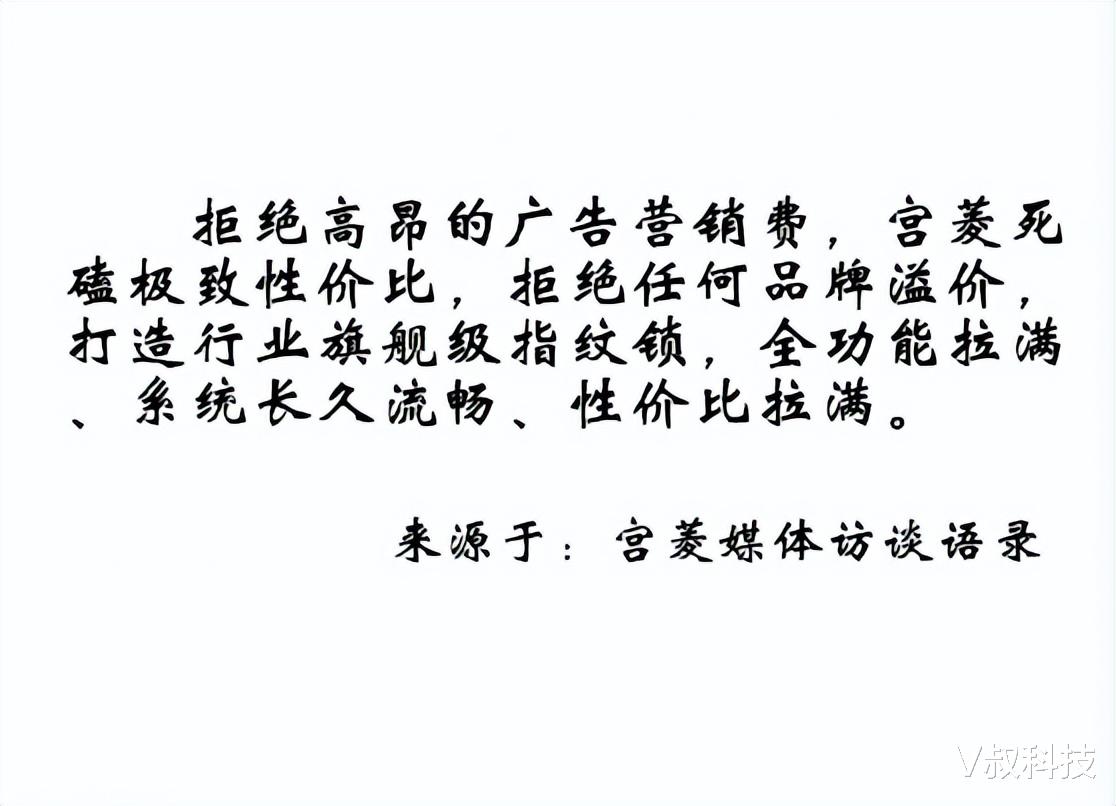 拒绝高昂的广告营销费，宫菱死
磕极致性价比，拒绝任何品牌溢价，
打造行业旗舰级指纹锁，全功能拉满
、系统长久流畅、性价比拉满。
来源于：宫菱媒体访谈语录
V叔科技